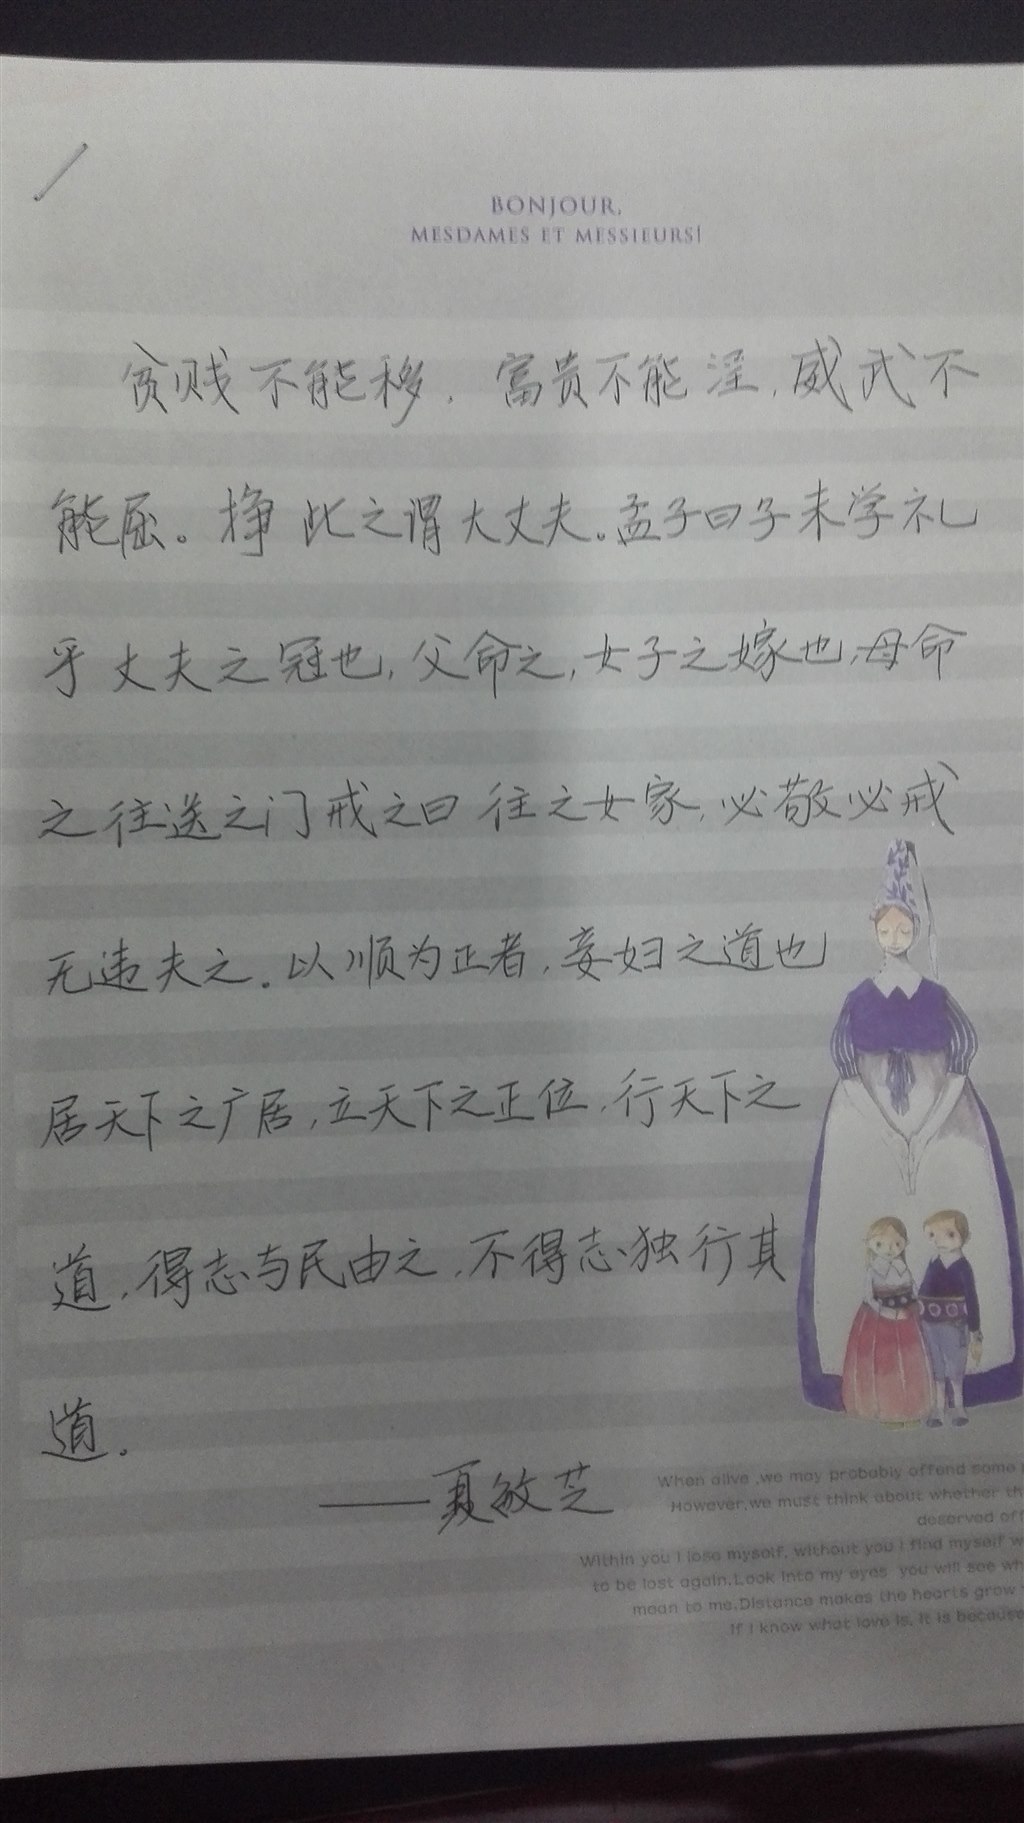 BONJOUR,
MESDAMES ET MESSIEURS!
贫贱不能移，富贵不能淫，威武不
能屈。挣此之谓大丈夫。孟子曰子未学礼
乎丈夫之冠也，父命之，女子之嫁也，母命
之往送之门戒之曰往之女家，必敬必戒
无违夫之。以顺为正者，妾妇之道也
居天下之广居，立天下之正位，行天下之
道，得志与民由之，不得志独行其
道。
——夏敏芝
When alive ,we may probably offend some
However,we must think about whether th
deserved off
Within you I lose myself, without you I find myself w
to be lost again.Look into my eyes you will see wh
mean to me.Distance makes the hearts grow
If I know what love is, it is because